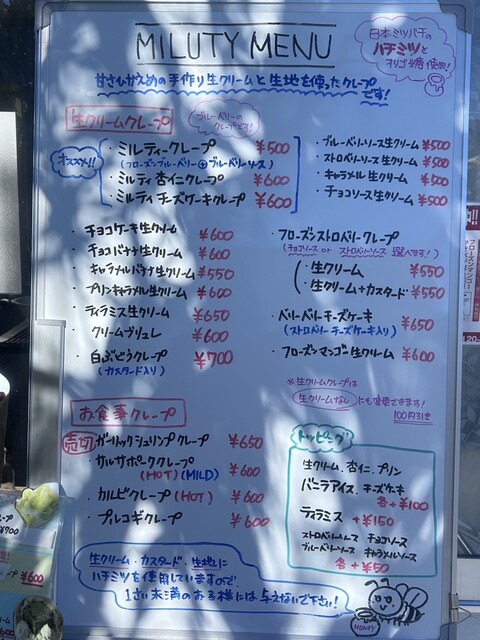 MILUTY MENU
日本ミツバチの
ハチミツと
オリゴ糖使用!
甘さひかえめの手作り生クリームと生地を使ったクレープ
です!
生クリームクレープ
ブルーベリーの
クレープです!
オススメ!!
・ミルティークレープ ¥500
(フローズンブルーベリー+ブルーベリーソース)
・ミルティ杏仁クレープ ¥600
・ミルティチーズケーキクレープ ¥600
・ブルーベリーソース生クリーム ¥500
・ストロベリーソース生クリーム ¥500
・キャラメル生クリーム ¥500
・チョコソース生クリーム ¥500
・チョコケーキ生クリーム ¥600
・チョコバナナ生クリーム ¥600
・キャラメルバナナ生クリーム ¥550
・プリンキャラメル生クリーム ¥600
・ティラミス生クリーム ¥650
・クリームブリュレ ¥600
・白ぶどうクレープ ¥700
(カスタード入り)
・フローズンストロベリークレープ
(チョコソース or ストロベリーソース 選べます!)
・生クリーム ¥550
・生クリーム+カスタード ¥550
・ベリーベリーチーズケーキ ¥650
(ストロベリーチーズケーキ入り)
・フローズンマンゴー生クリーム ¥600
※生クリームクレープは
生クリームなしにも変更できます!
100円引き
お食事クレープ
売切 ガーリックシュリンプクレープ ¥650
・サルサポーククレープ ¥600
(HOT) (MILD)
・カルビクレープ (HOT) ¥600
・プルコギクレープ ¥600
トッピング
生クリーム、杏仁、プリン
バニラアイス、チーズケーキ
各+¥100
ティラミス +¥150
ストロベリーソース チョコソース
ブルーベリーソース キャラメルソース
各+¥50
生クリーム・カスタード・生地に
ハチミツを使用していますので
1さい未満のお子様には与えないで下さい!
HONEY
¥700
¥600
フローズンマンゴー